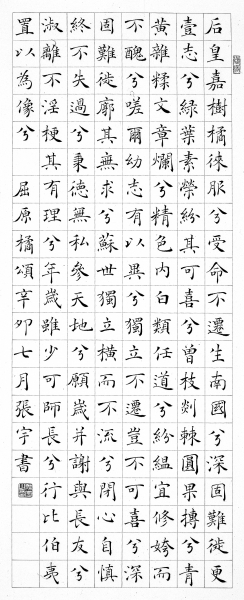 后皇嘉樹橘徠服兮受命不遷生南國兮深固難徙更
壹志兮綠葉素榮紛其可喜兮曾枝剡棘圓果摶兮青
黃雜糅文章爛兮精色內白類任道兮紛縕宜修姱而
不醜兮嗟爾幼志有以異兮獨立不遷豈不可喜兮深
固難徙廓其無求兮蘇世獨立橫而不流兮閉心自慎
終不失過兮秉德無私參天地兮願歲并謝與長友兮
淑離不淫梗其有理兮年歲雖少可師長兮行比伯夷
置以為像兮 屈原橘頌辛卯七月張宇書